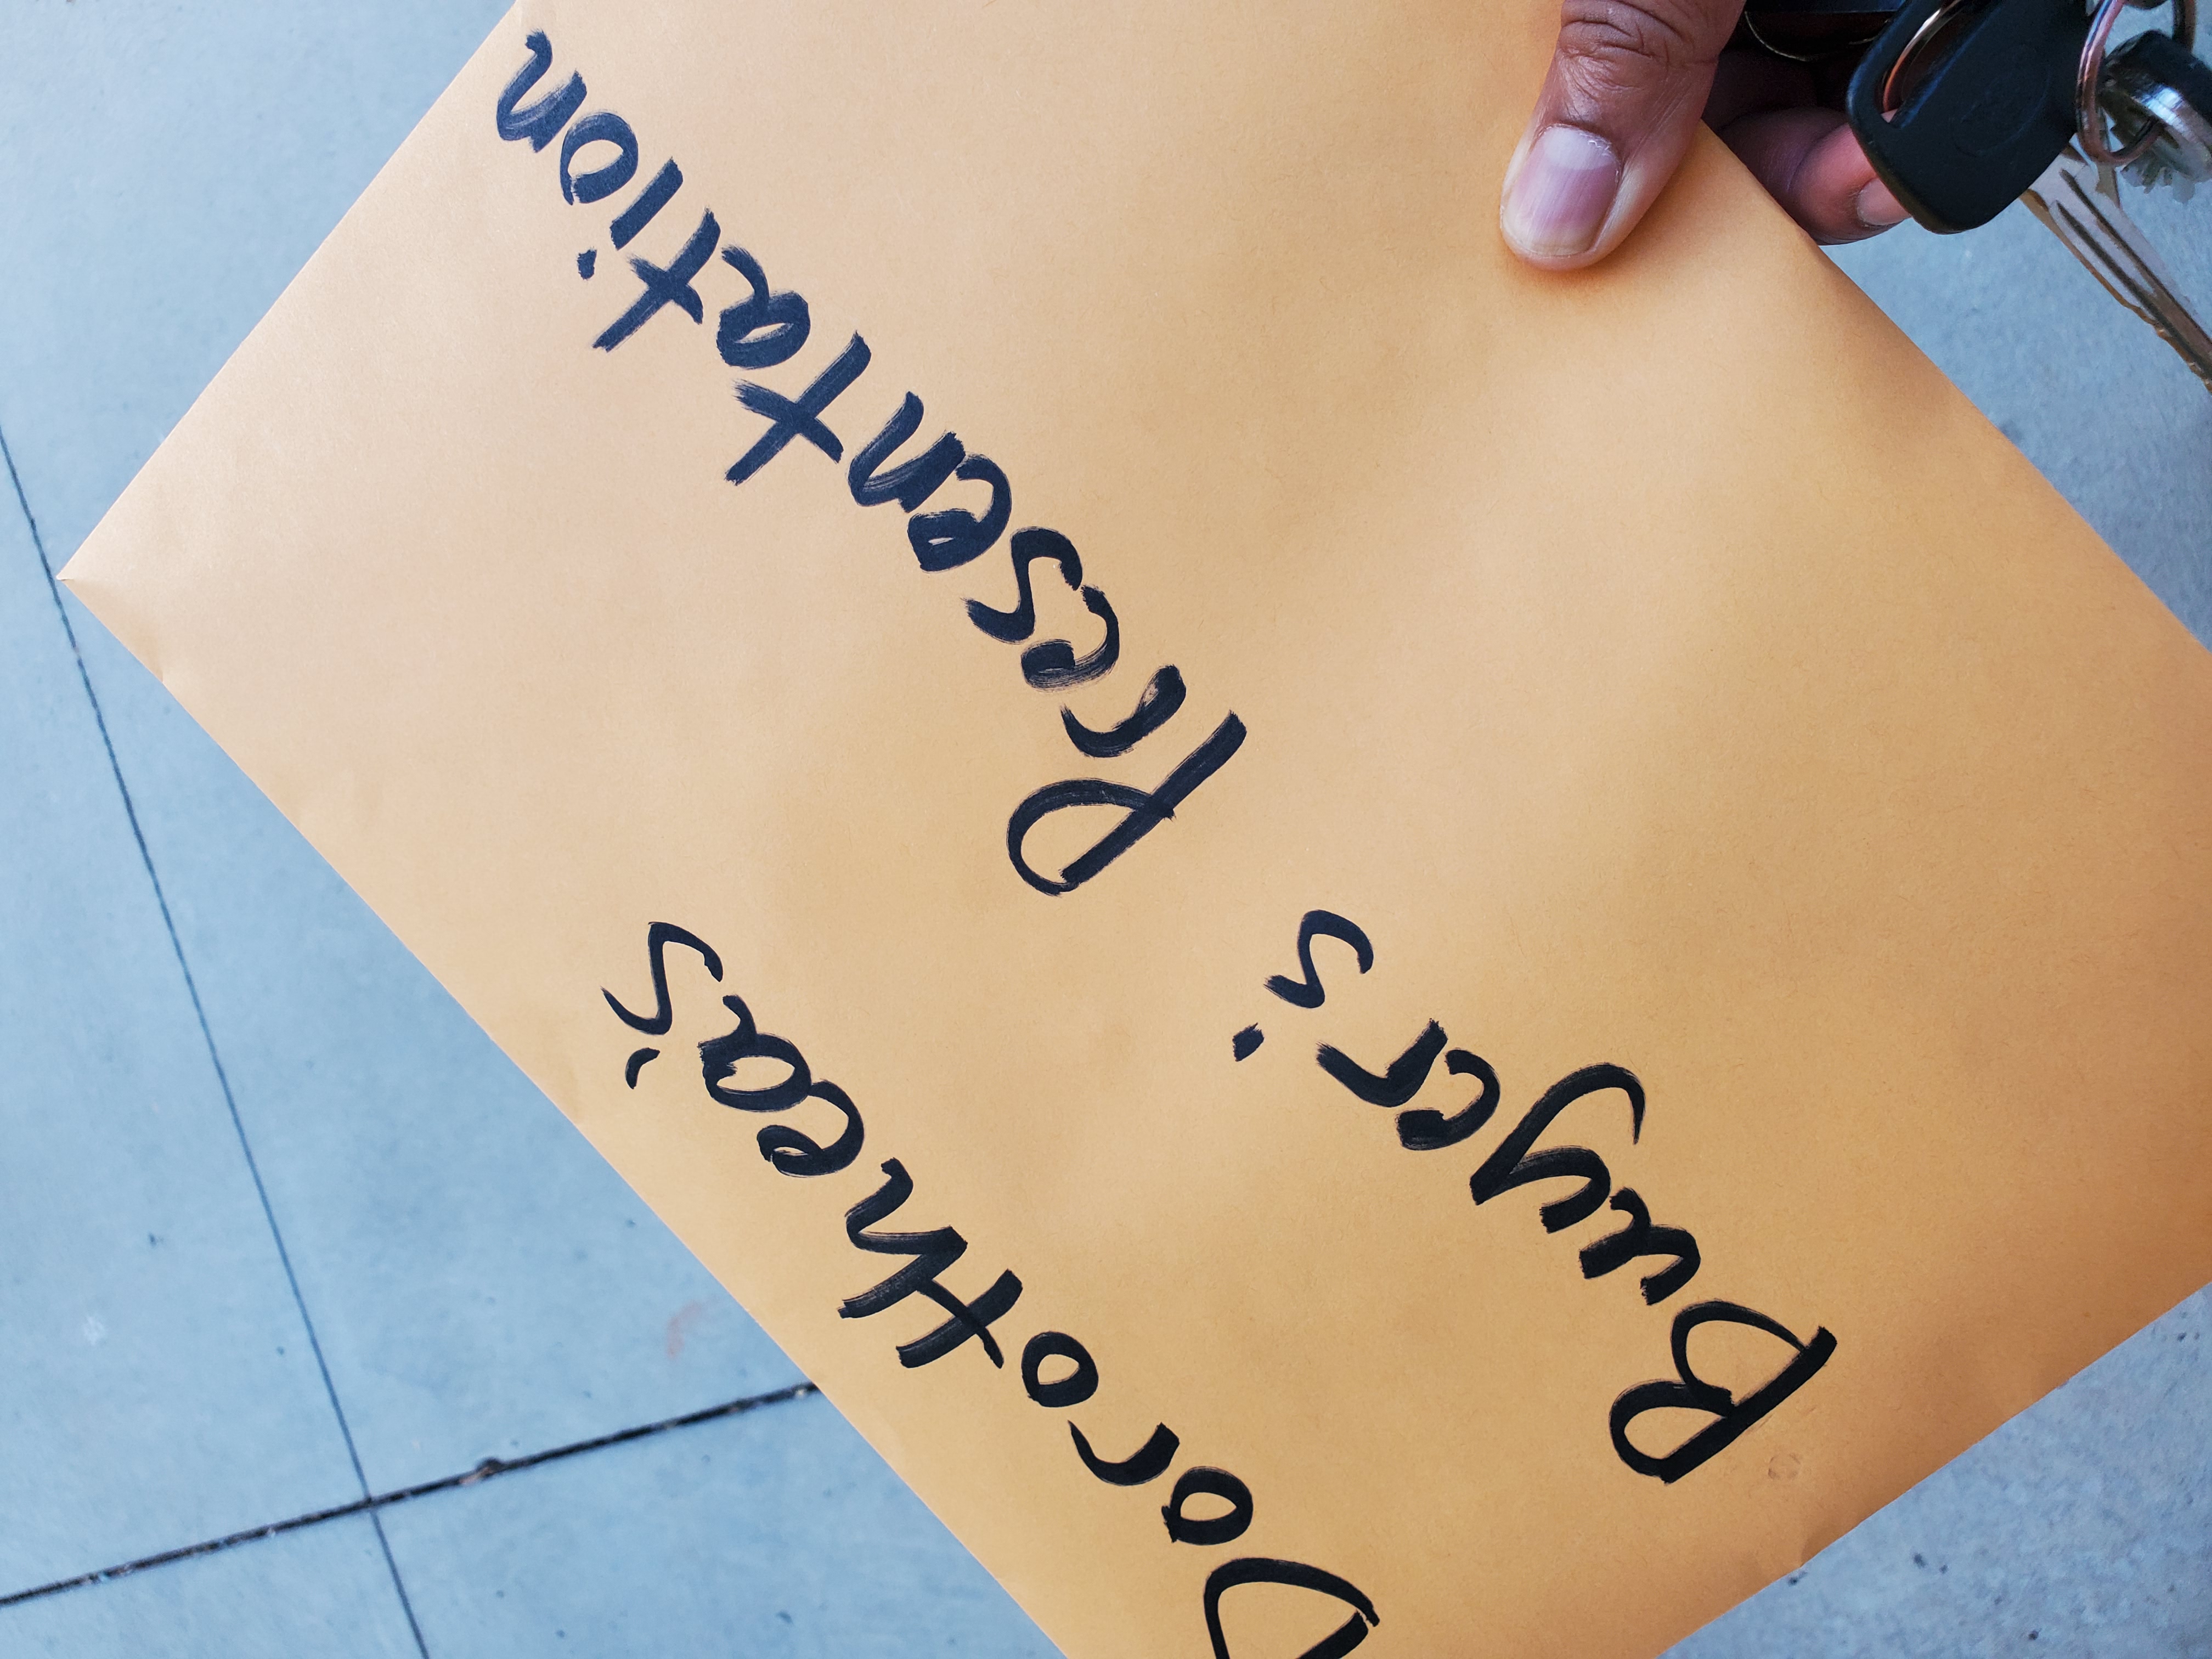 Dorothea's
Buyer's Presentation